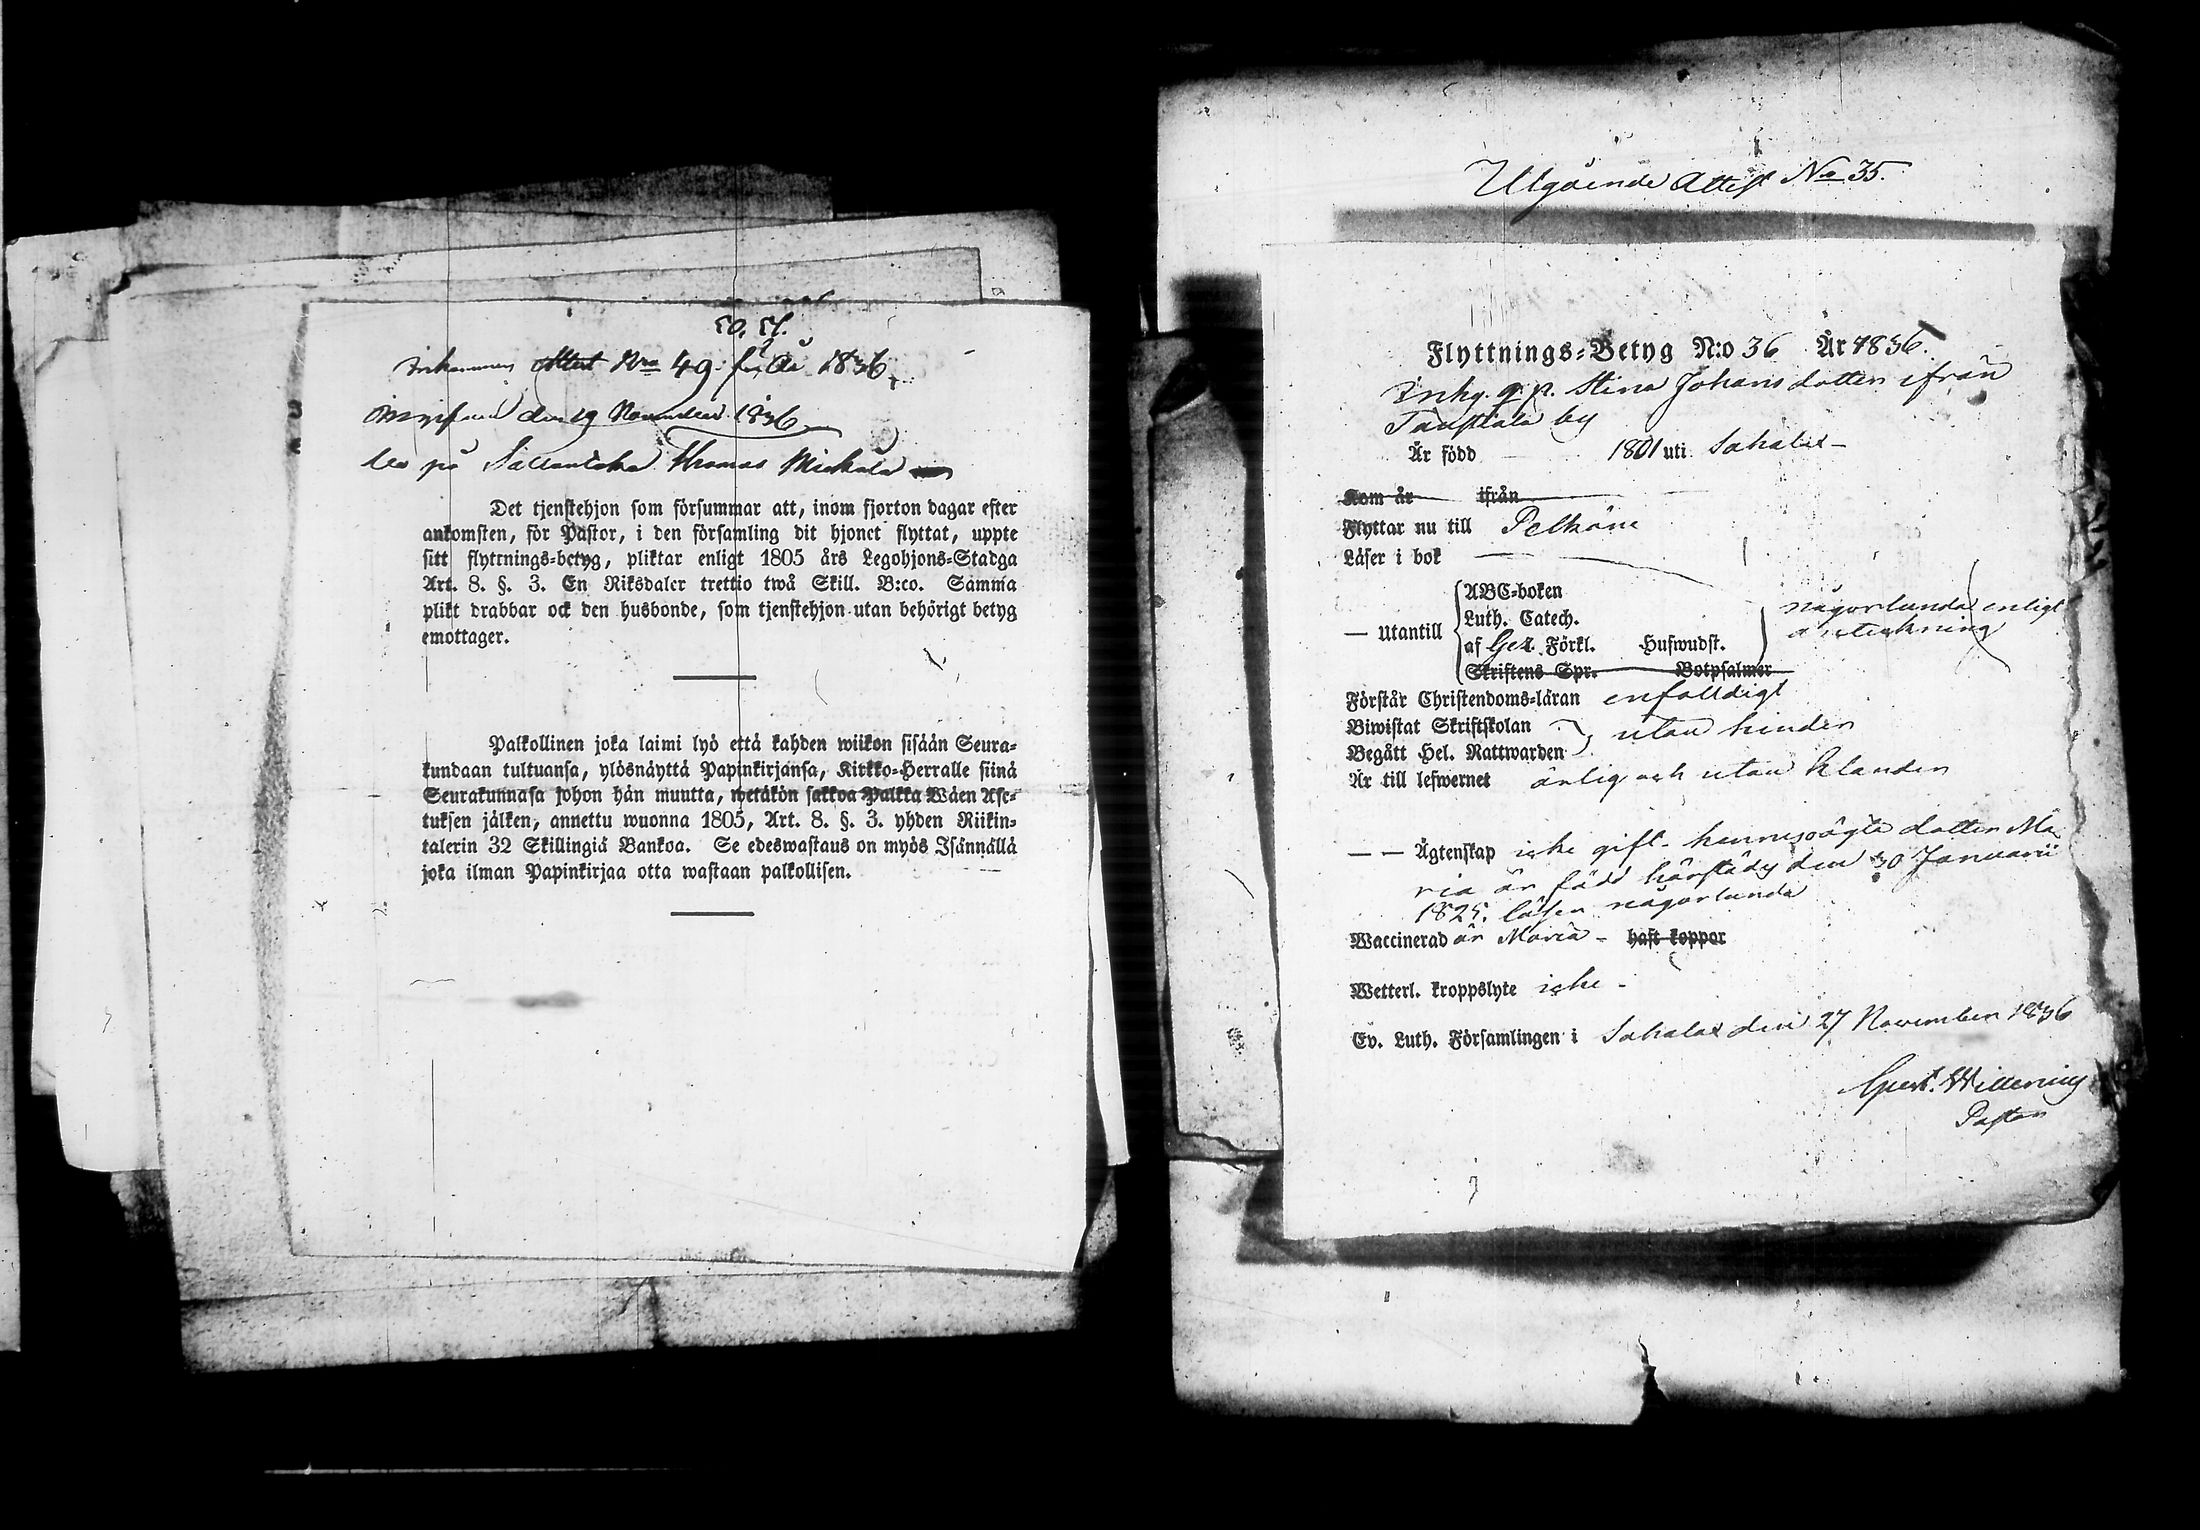 50. 51.
Inkommen Attest Nro 49 för År 1836
den 19 November 1836
på Thomas Michels
Det tjenstehjon som försummar att, inom fjorton dagar efter
ankomsten, för Pastor, i den församling dit hjonet flyttat, uppte
sitt flyttnings-betyg, pliktar enligt 1805 års Legohjons-Stadga
Art. 8. §. 3. En Riksdaler trettio twå Skill. B:co. Samma
plikt drabbar ock den husbonde, som tjenstehjon utan behörigt betyg
emottager.
Palkollinen joka laimi lyö että kahden wiikon sisään Seura-
kundaan tultuansa, ylösnäyttä Papinkirjansa, Kirkko-Herralle siinä
Seurakunnasa johon hän muutta, wetäkön sakkoa Palkka Wäen Ase-
tuksen jälken, annettu wuonna 1805, Art. 8. §. 3. yhden Riikin-
talerin 32 Skillingiä Bankoa. Se edeswastaus on myös Isännällä
joka ilman Papinkirjaa otta wastaan palkollisen.
Utgående Attest No 35.
Flyttnings-Betyg N:o 36 År 1836.
Inhy. q. p. Stina Johansdotter ifrån
by
Är född 1801 uti Sahalax
Kom år ifrån
Flyttar nu till Pelkäne
Läser i bok
— Utantill
ABC-boken
Luth. Catech.
af Gez. Förkl. Huswudst.
Skriftens Spr. Botpsalmer
någorlunda enligt
anteckning
Förstår Christendoms-läran enfaldigt
Biwistat Skriftskolan
Begått Hel. Nattwarden
utan hinder
Är till lefwernet ärlig och utan klander
— — Ägtenskap icke gift. hennes oägta dotter Ma
ria är född härstädes den 30 Januarii
1825. läser någorlunda
Waccinerad är Maria - haft koppor
Wetterl. kroppslyte icke -
Ev. Luth. Församlingen i Sahalax den 27 November 1836
Pastor